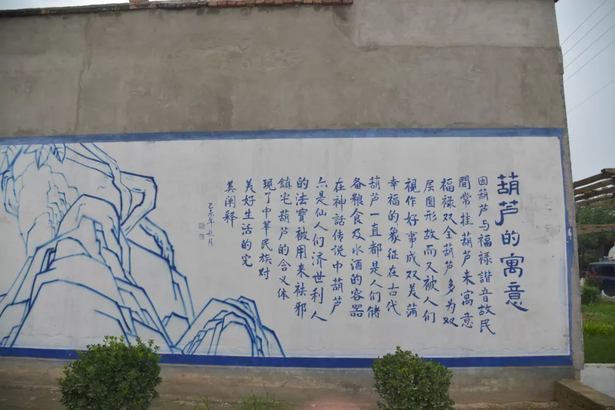 葫芦的寓意
因葫芦与福禄谐音故民
間常挂葫芦来寓意
福禄双全葫芦多为双
层圆形故而又被人们
視作好事成双美蒲
幸福的象征在古代
葫芦一直都是人们储
备粮食及水酒的容器
在神话传说中葫芦
亦是仙人们济世利人
的法寶被用来祛邪
鎮宅葫芦的含义体
现了中華民族对
美好生活的完
美阐释